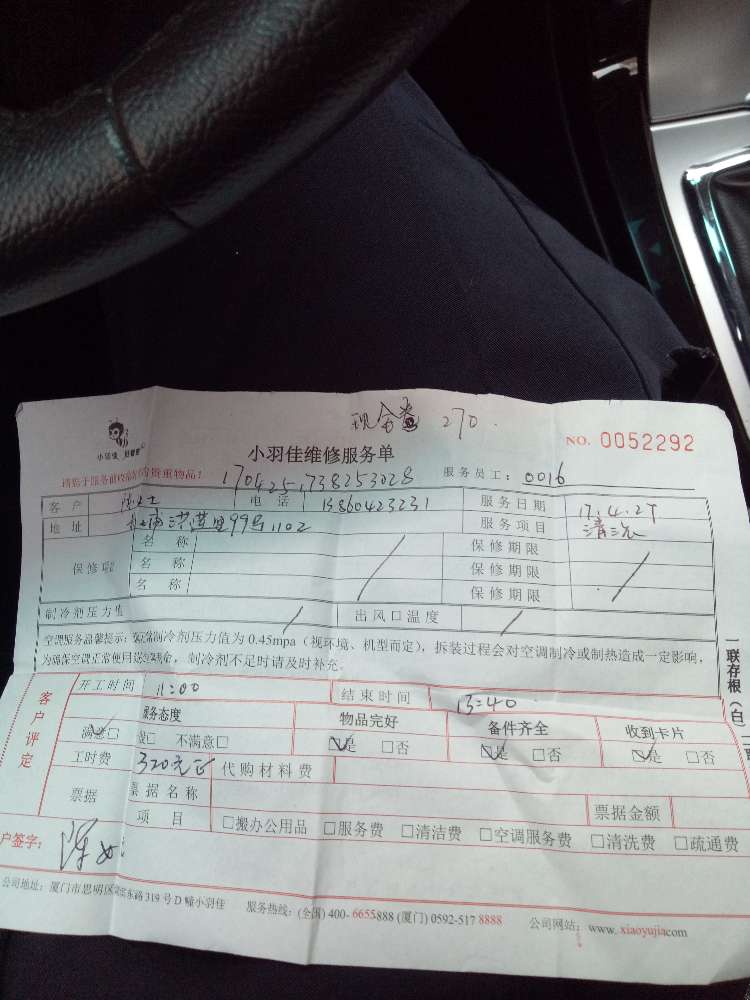 现金 270.
小羽佳维修服务单
NO. 0052292
170425,738253028
服务员工: 0016
客户 陈女士 电话 13860423231 服务日期 17.4.27
地址 99号1102 服务项目 清洗
保修 名称 保修期限
名称 保修期限
名称 保修期限
制冷剂压力值 出风口温度
空调服务温馨提示: 制冷剂压力值为 0.45mpa (视环境、机型而定), 拆装过程会对空调制冷或制热造成一定影响,
为确保空调正常使用 制冷剂不足时请及时补充。
一联存根 (白)
客户评定
开工时间 11:00 结束时间 13:40
服务态度 物品完好 备件齐全 收到卡片
满意□ □ 不满意□ □是 □否 □是 □否 □是 □否
工时费 320元正 代购材料费
票据 票据名称 票据金额
项目 □搬办公用品 □服务费 □清洁费 □空调服务费 □清洗费 □疏通费
户签字: 陈
公司地址: 厦门市思明区 东路 319 号 D 幢小羽佳 服务热线: (全国) 400-6655888 (厦门) 0592-517 8888 公司网站: www. xiaoyujia.com